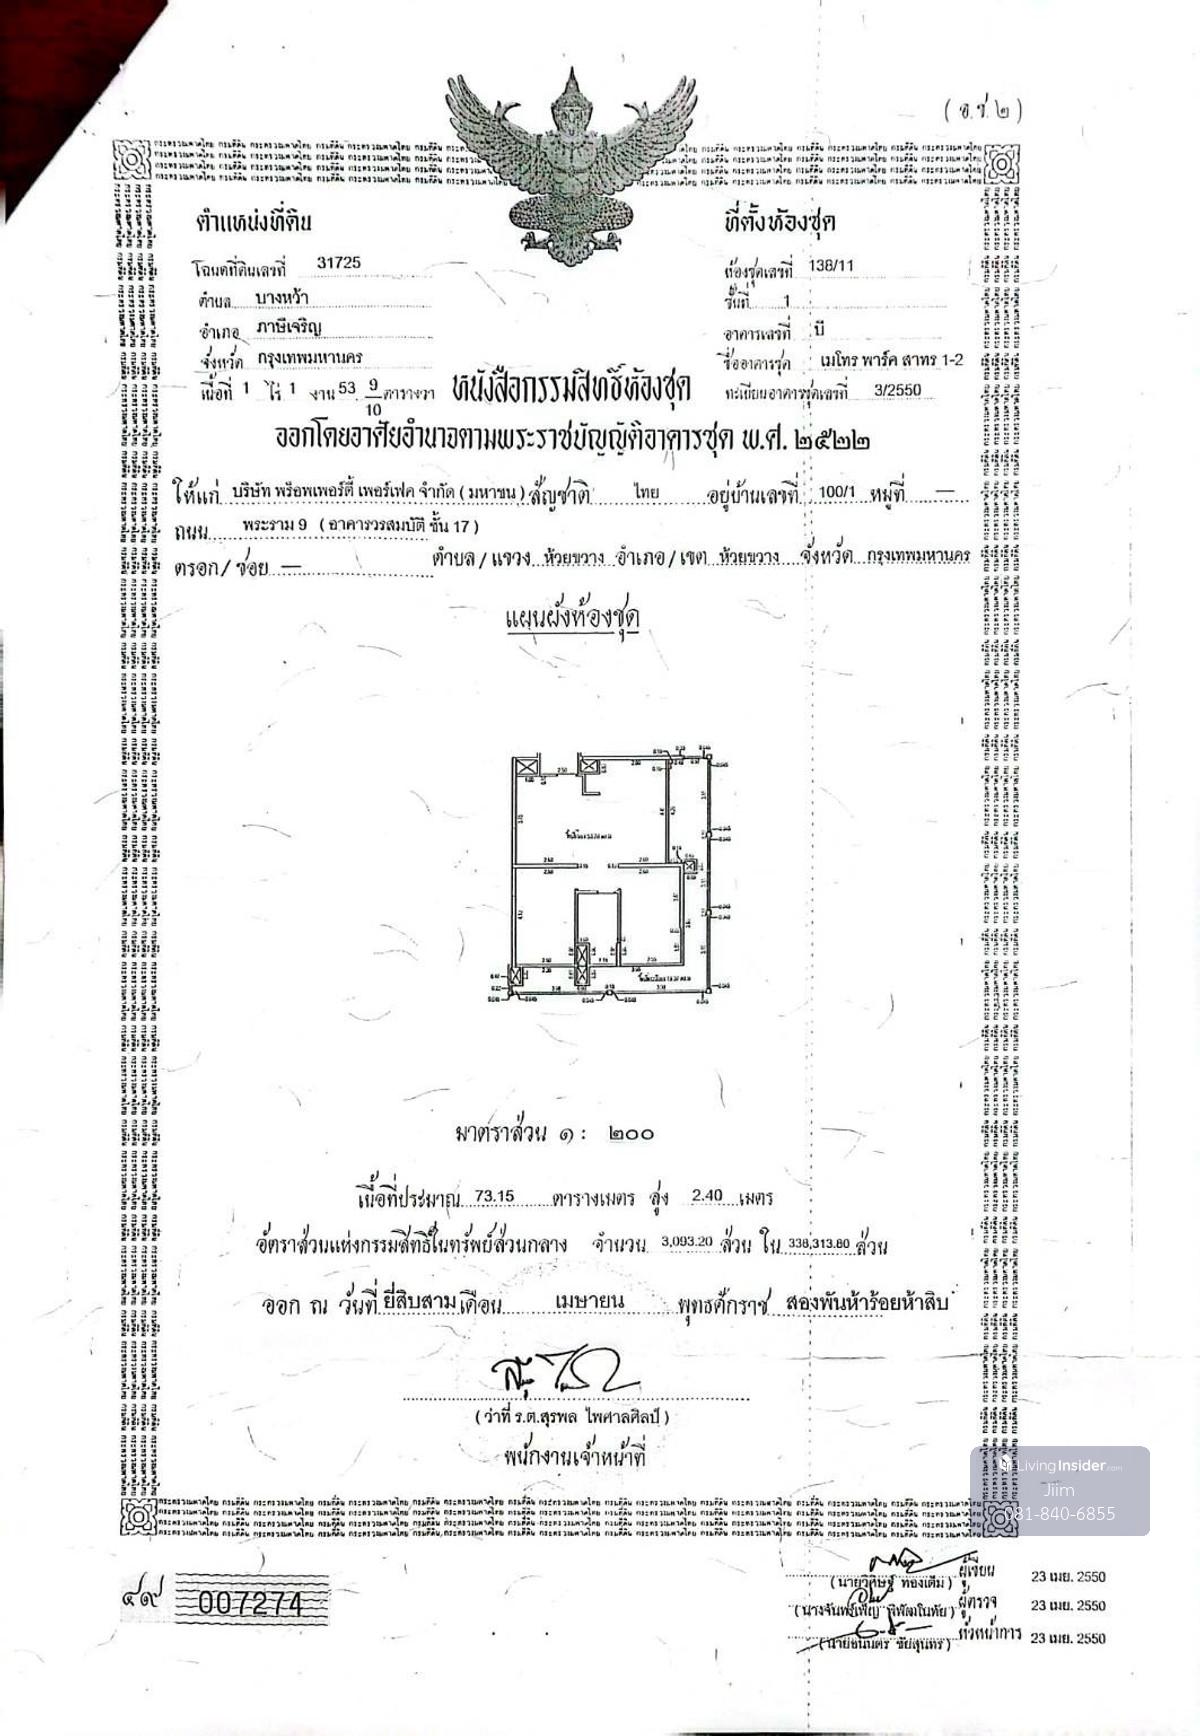 ( อ.ช.๒ )
ตำแหน่งที่ดิน
ที่ตั้งห้องชุด
โฉนดที่ดินเลขที่ 31725
ห้องชุดเลขที่ 138/11
ตำบล บางหว้า
ชั้นที่ 1
อำเภอ ภาษีเจริญ
อาคารเลขที่ บี
จังหวัด กรุงเทพมหานคร
ชื่ออาคารชุด เมโทร พาร์ค สาทร 1-2
เนื้อที่ 1 ไร่ 1 งาน 53 9/10 ตารางวา
ทะเบียนอาคารชุดเลขที่ 3/2550
หนังสือกรรมสิทธิ์ห้องชุด
ออกโดยอาศัยอำนาจตามพระราชบัญญัติอาคารชุด พ.ศ. ๒๕๒๒
ให้แก่ บริษัท พร็อพเพอร์ตี้ เพอร์เฟค จำกัด ( มหาชน ) สัญชาติ ไทย อยู่บ้านเลขที่ 100/1 หมู่ที่ —
ถนน พระราม 9 ( อาคารวรสมบัติ ชั้น 17 )
ตรอก / ซอย — ตำบล / แขวง ห้วยขวาง อำเภอ / เขต ห้วยขวาง จังหวัด กรุงเทพมหานคร
แผนผังห้องชุด
มาตราส่วน ๑ : ๒๐๐
เนื้อที่ประมาณ 73.15 ตารางเมตร สูง 2.40 เมตร
อัตราส่วนแห่งกรรมสิทธิ์ในทรัพย์ส่วนกลาง จำนวน 3,093.20 ส่วน ใน 338,313.80 ส่วน
ออก ณ วันที่ ยี่สิบสาม เดือน เมษายน พุทธศักราช สองพันห้าร้อยห้าสิบ
( ว่าที่ ร.ต.สุรพล ไพศาลศิลป์ )
พนักงานเจ้าหน้าที่
LivingInsider.com
Jiim
081-840-6855
ผู้เขียน 23 เมย. 2550
ผู้ตรวจ 23 เมย. 2550
หัวหน้าการ 23 เมย. 2550
๔๙ 007274